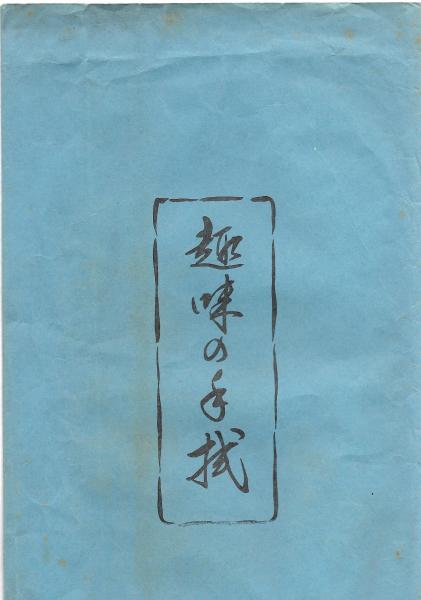 趣味の手拭